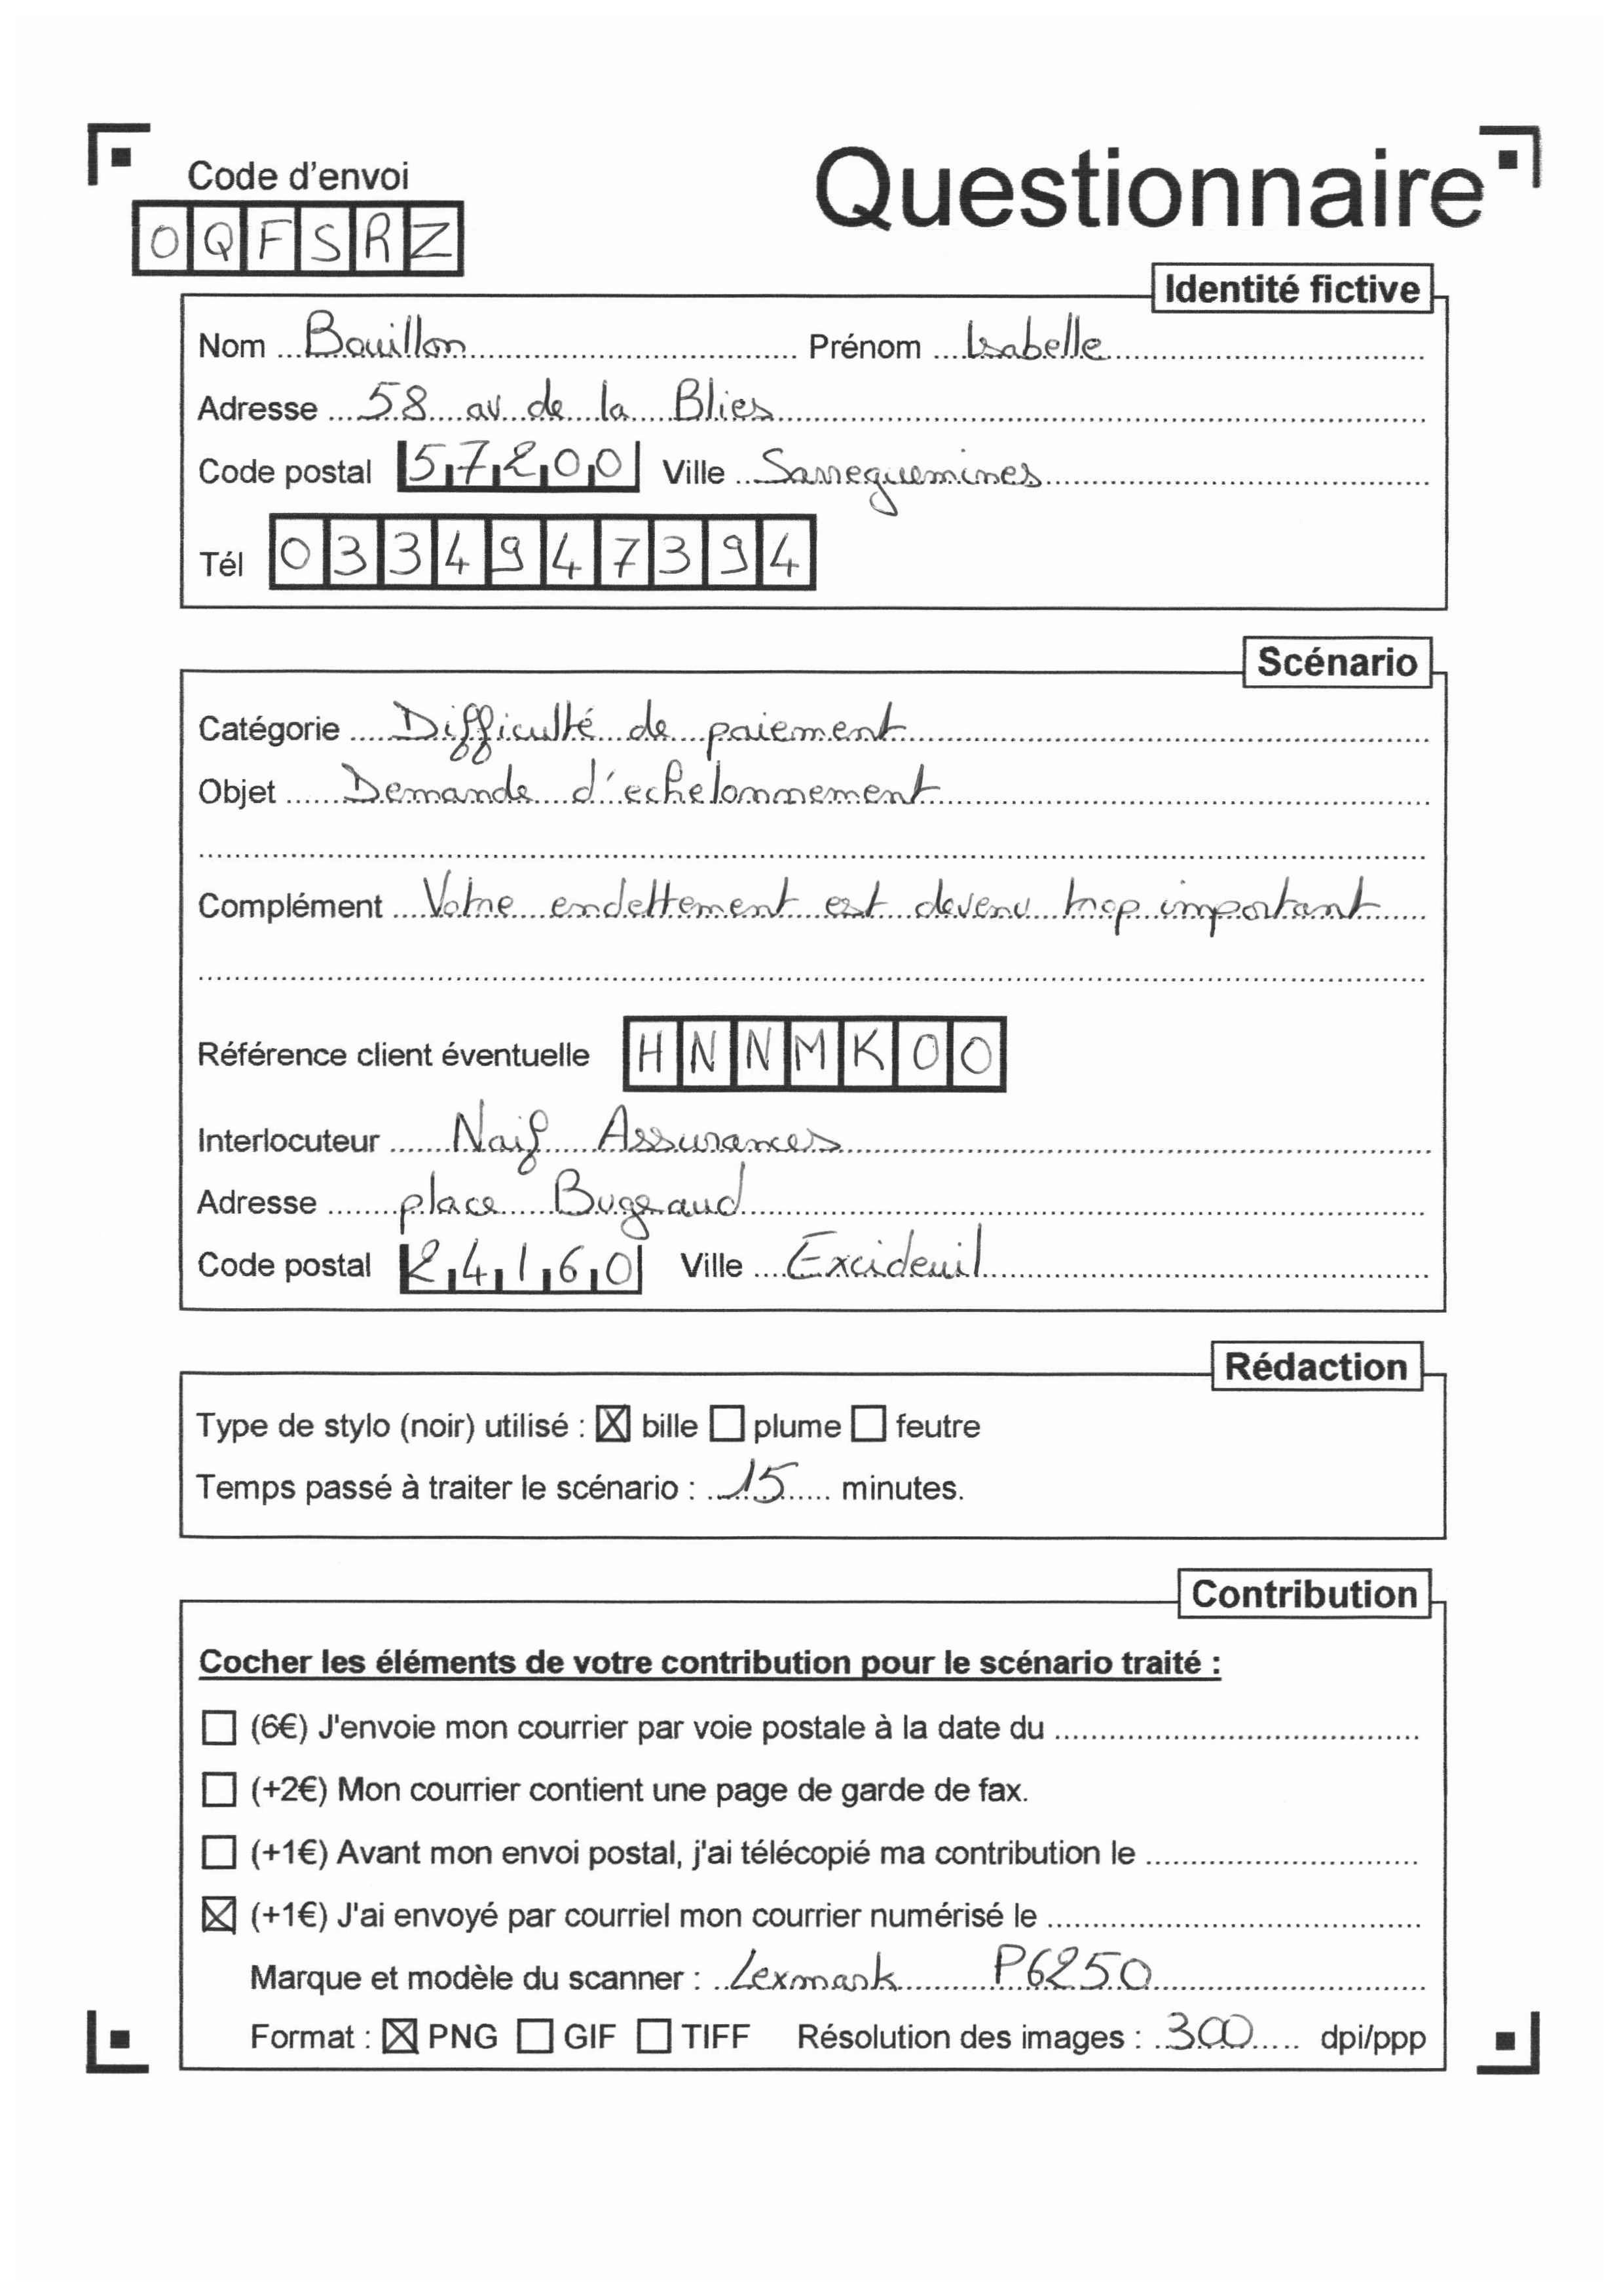 Code d'envoi
Questionnaire
OQFSRZ
Identité fictive
Nom Bouillon Prénom Isabelle
Adresse 58 av de la Blies
Code postal 57200 Ville Sarreguemines
Tél 0334947394
Scénario
Catégorie Difficulté de paiement
Objet Demande d'echelonnement
Complément Votre endettement est devenu trop important
Référence client éventuelle HNNMK00
Interlocuteur Naif Assurances
Adresse place Bugeaud
Code postal 24160 Ville Excideuil
Rédaction
Type de stylo (noir) utilisé : ☒ bille ☐ plume ☐ feutre
Temps passé à traiter le scénario : 15 minutes.
Contribution
Cocher les éléments de votre contribution pour le scénario traité :
☐ (6€) J'envoie mon courrier par voie postale à la date du
☐ (+2€) Mon courrier contient une page de garde de fax.
☐ (+1€) Avant mon envoi postal, j'ai télécopié ma contribution le
☒ (+1€) J'ai envoyé par courriel mon courrier numérisé le
Marque et modèle du scanner : Lexmark P6250
Format : ☒ PNG ☐ GIF ☐ TIFF Résolution des images : 300 dpi/ppp